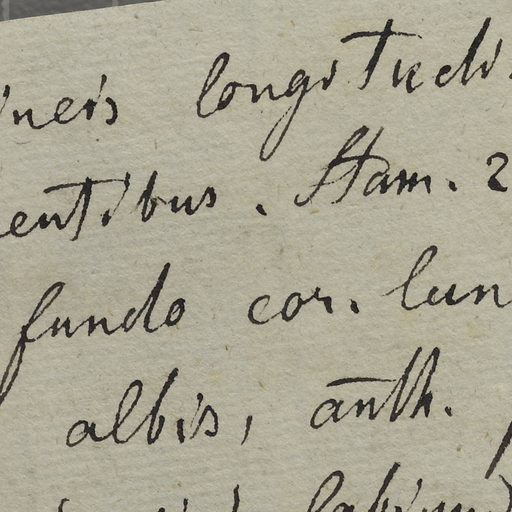 ineis longitudi
entibus. Stam. 2
fundo cor. lun
albis, anth.